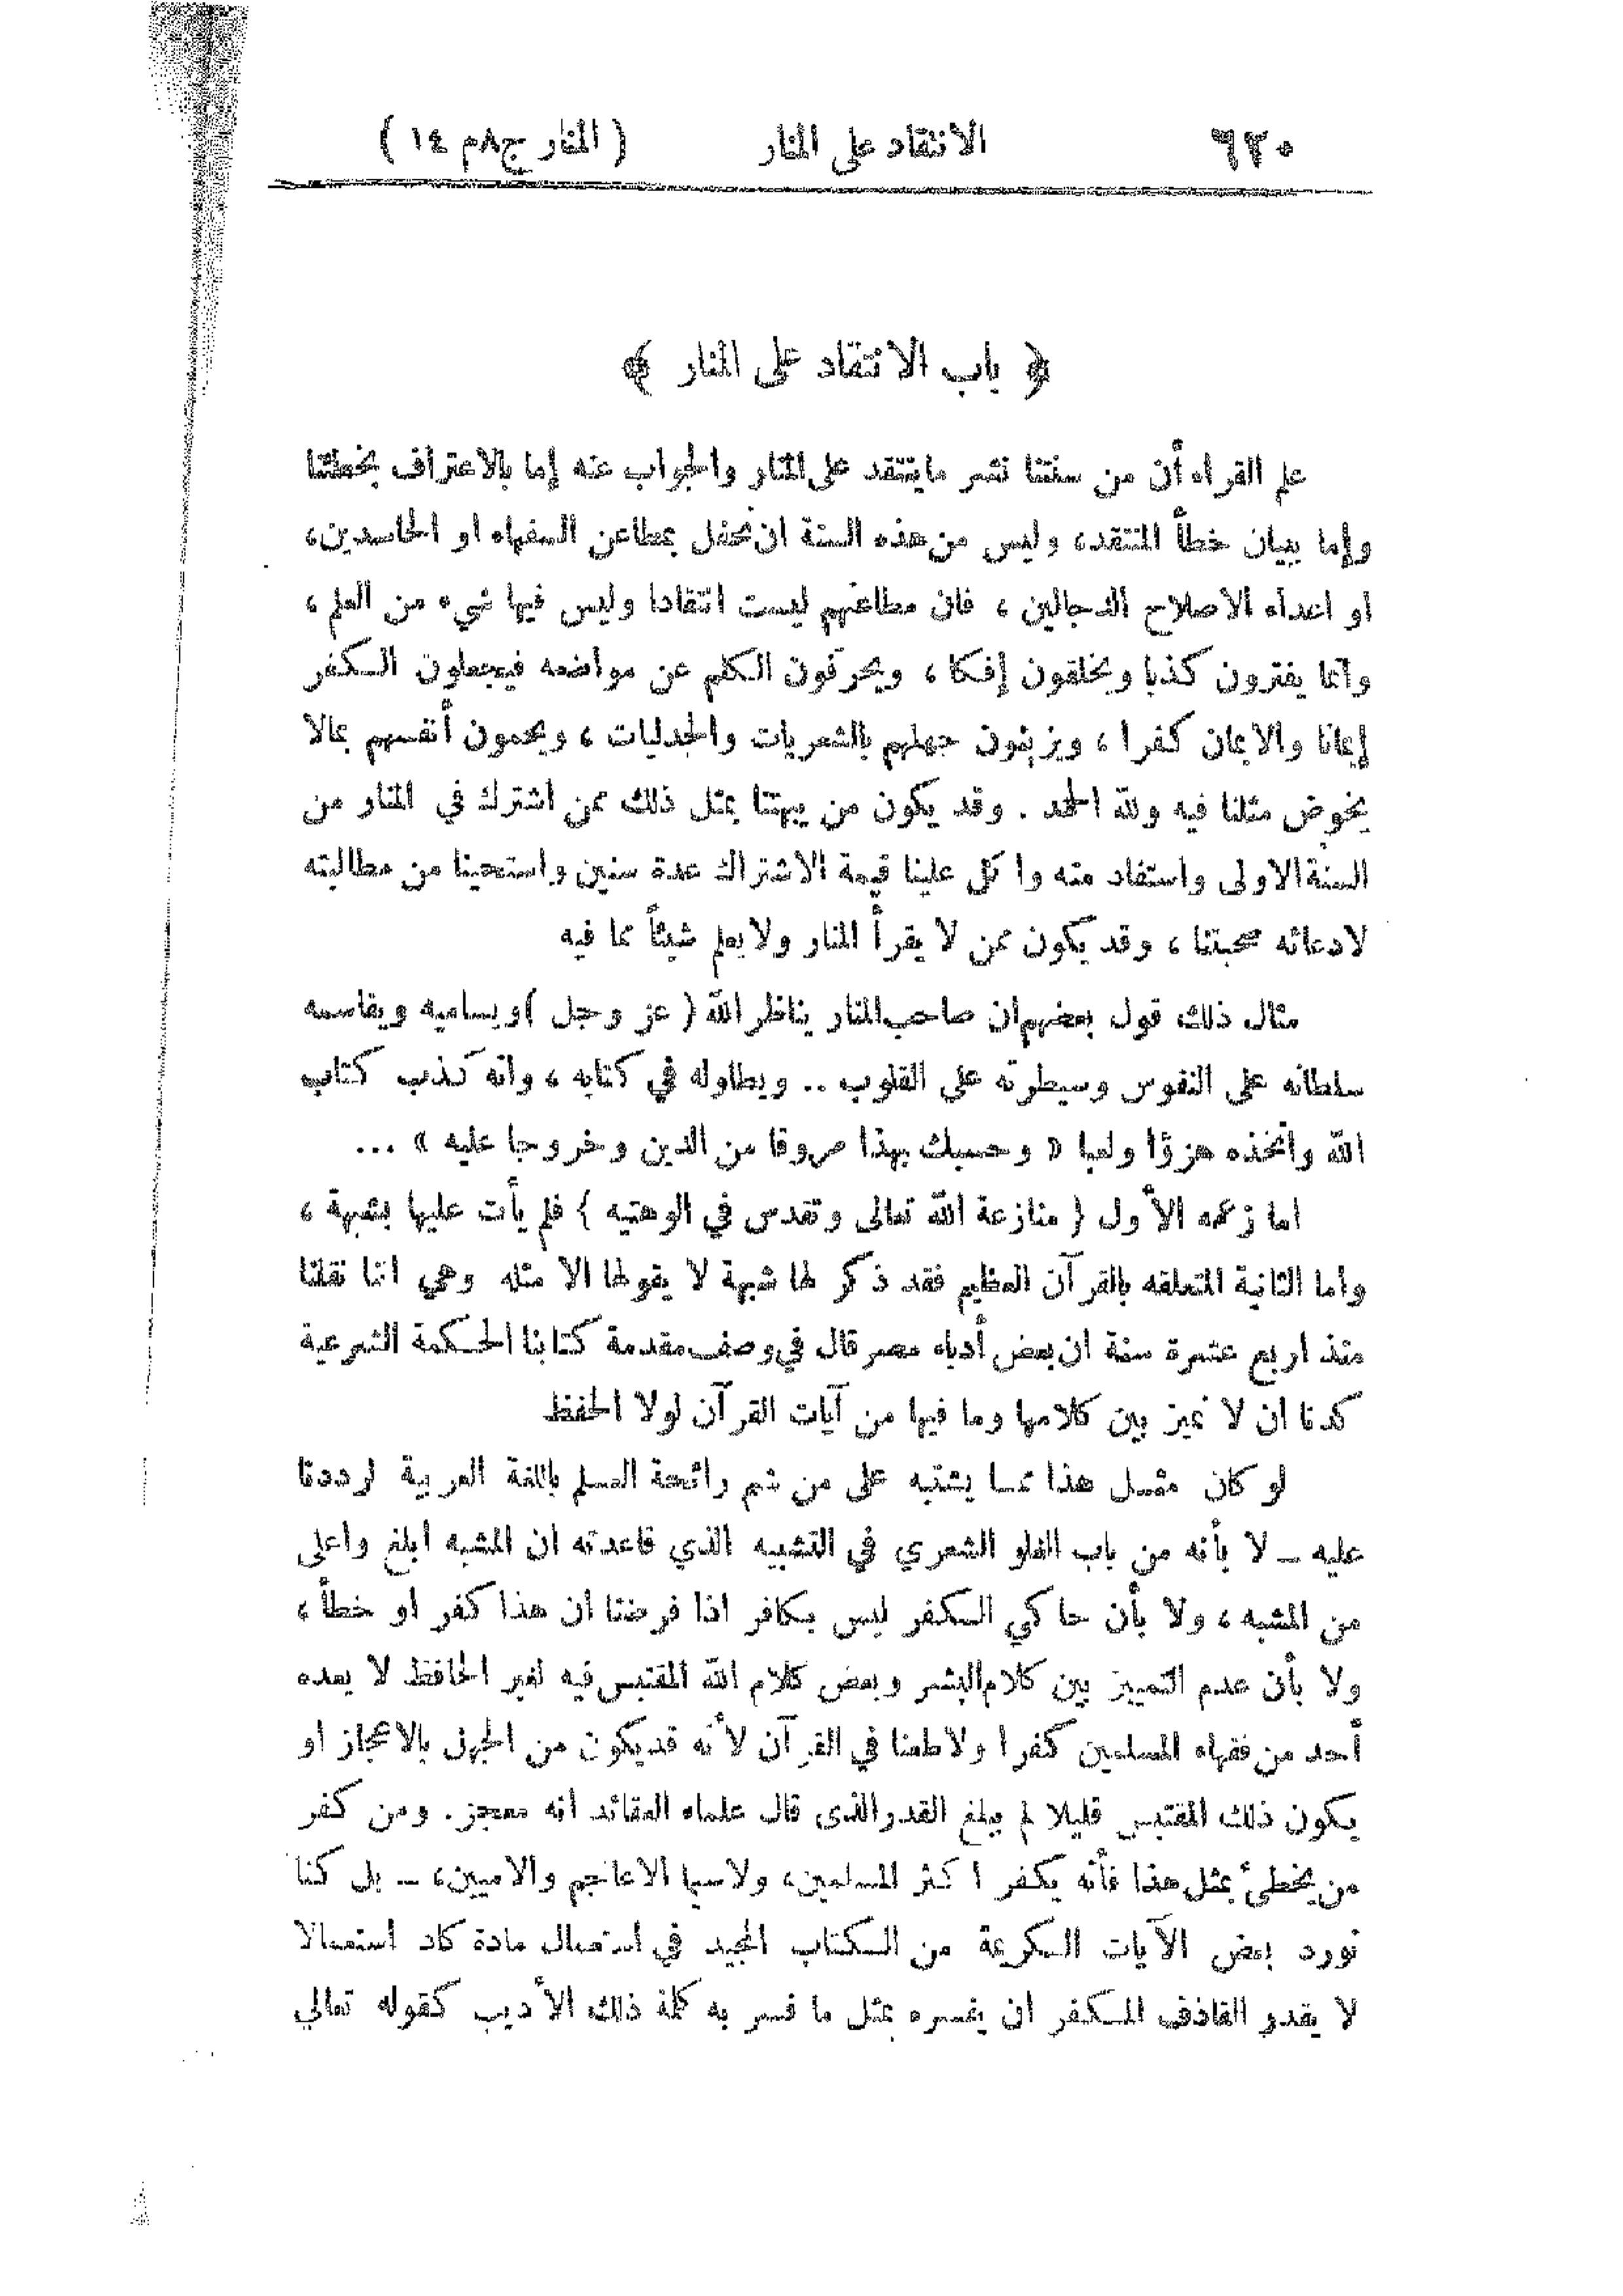 ٦٢٠ الانتقاد على المنار ( المنار ج٨م ١٤ )
﴿ باب الانتقاد على المنار ﴾
علم القراء أن من سنتنا نشر ماينتقد على المنار والجواب عنه إما بالاعتراف بخطئنا
وإما ببيان خطأ المنتقد، وليس من هذه السنة ان نحفل بمطاعن السفهاء او الحاسدين،
او اعداء الاصلاح الدجالين ، فان مطاعنهم ليست انتقادا وليس فيها شيء من العلم ،
وانما يفترون كذبا ويخلقون إفكا ، ويحرفون الكلم عن مواضعه فيجعلون الكفر
إيمانا والايمان كفرا ، ويزينون جهلهم بالشعريات والجدليات ، ويحمون أنفسهم بمالا
يخوض مثلنا فيه ولله الحمد . وقد يكون من يبهتنا بمثل ذلك ممن اشترك في المنار من
السنة الاولى واستفاد منه وا كل علينا قيمة الاشتراك عدة سنين واستحينا من مطالبته
لادعائه محبتنا ، وقد يكون ممن لا يقرأ المنار ولايعلم شيئاً مما فيه
مثال ذلك قول بعضهم ان صاحب المنار يناظر الله ( عز وجل )ويساميه ويقاسمه
سلطانه على النفوس وسيطرته على القلوب .. ويطاوله في كتابه ، وانه كذب كتاب
الله واتخذه هزؤا ولعبا « وحسبك بهذا مروقا من الدين وخروجا عليه » ...
اما زعمه الأول ( منازعة الله تعالى وتقدس في الوهتيه ) فلم يأت عليها بشبهة ،
واما الثانية المتعلقه بالقرآن العظيم فقد ذكر لها شبهة لا يقولها الا مثله وهي اننا نقلنا
منذ اربع عشرة سنة ان بعض أدباء مصر قال في وصف مقدمة كتابنا الحكمة الشرعية
كدنا ان لا نميز بين كلامها وما فيها من آيات القرآن لولا الحفظ
لو كان مثل هذا مما يشتبه على من شم رائحة العلم باللغة العربية لرددنا
عليه ــ لا بأنه من باب الغلو الشعري في التشبيه الذي قاعدته ان المشبه ابلغ واعلى
من المشبه ، ولا بأن حا كي الكفر ليس بكافر اذا فرضنا ان هذا كفر او خطأ ،
ولا بأن عدم التمييز بين كلام البشر وبعض كلام الله المقتبس فيه لغير الحافظ لا يعده
أحد من فقهاء المسلمين كفرا ولاطعنا في القرآن لأنه قديكون من الجهل بالاعجاز او
يكون ذلك المقتبس قليلا لم يبلغ القدر الذى قال علماء العقائد انه معجز . ومن كفر
من يخطئ بمثل هذا فأنه يكفر ا كثر المسلمين، ولاسيما الاعاجم والاميين، ــ بل كنا
نورد بعض الآيات الكريمة من الكتاب المجيد في استعمال مادة كاد استعمالا
لا يقدر القاذف المكفر ان يفسره بمثل ما فسر به كلمة ذلك الأديب كقوله تعالي